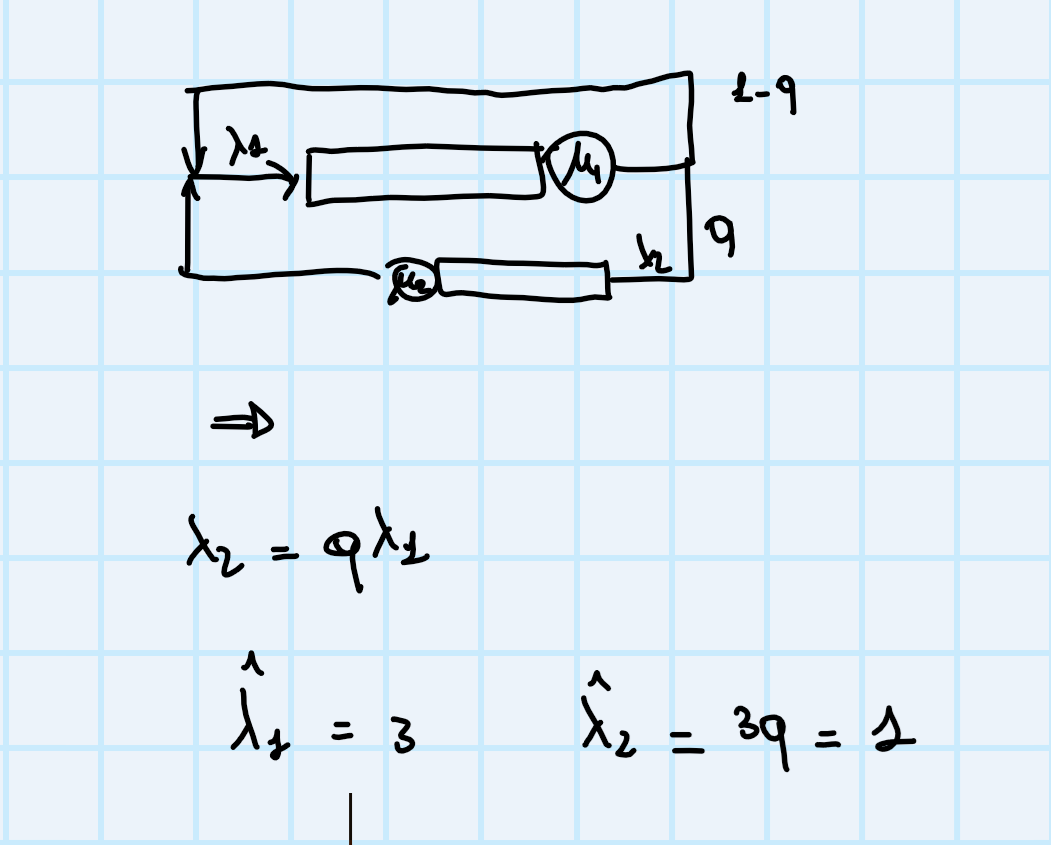 1-q
λ1
μ1
q
λ2
μ2
⇒
λ2 = qλ1
λ̂1 = 3 λ̂2 = 3q = 1